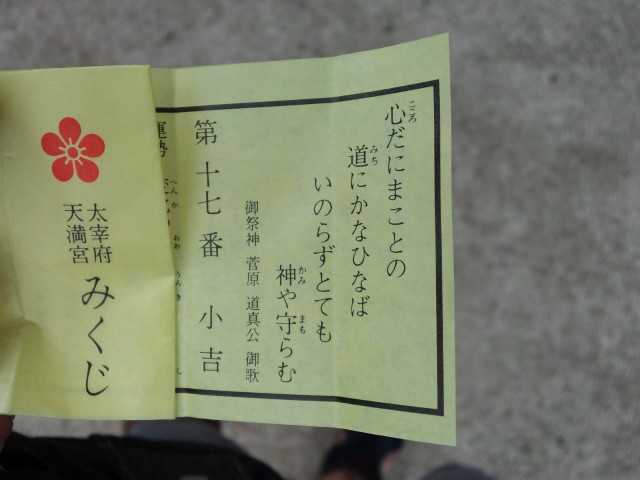 心だにまことの
道にかなひなば
いのらずとても
神や守らむ
御祭神 菅原 道真公 御歌
第十七番 小吉
運勢
太宰府
天満宮
みくじ